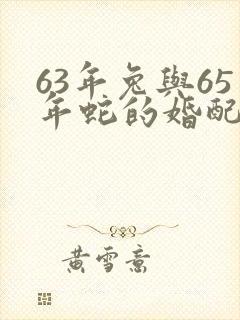 63年兔與65
年蛇的婚配
黃雪意